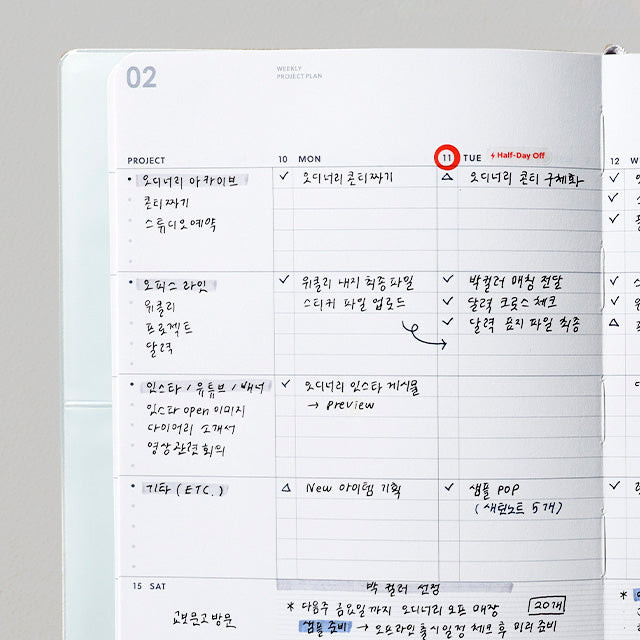 02
WEEKLY
PROJECT PLAN
PROJECT
10 MON
11 TUE Half-Day Off
12 W
오디너리 아카이브
콘티짜기
스튜디오예약
오디너리콘티짜기
오디너리 콘티 구체화
오피스 라인
위클리
프로젝트
달력
위클리 내지 최종파일
스티커 파일 업로드
박컬러 매칭 전달
달력 크로스 체크
달력 표지 파일 최종
인스타 / 유튜브 / 배너
인스타 open 이미지
다이어리 소개서
영상관련회의
오디너리 인스타 게시물
→ preview
기타 (ETC.)
New 아이템 기획
샘플 POP
(새턴노트 5개)
15 SAT
교보문고방문
박 컬러 선정
* 다음주 금요일까지 오디너리 오프 매장 20개
샘플 준비 → 오프라인출시일정 체크 후 미리준비